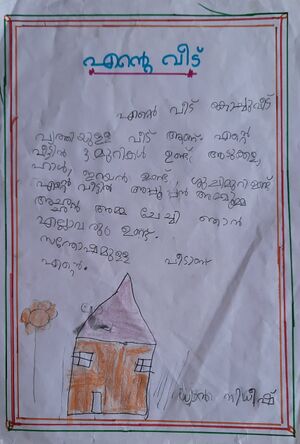 എന്റെ വീട്
എന്റെ വീട്
വൃത്തിയുള്ള വീട് ആണ് എന്റെ
വീട്ടിൽ 3 മുറികൾ ഉണ്ട് അടുക്കള,
ഹാൾ, ഇറയൻ ഉണ്ട്, ശുചിമുറിഉണ്ട്
എന്റെ വീട്ടിൽ അപ്പൂപ്പൻ അമ്മൂമ്മ
അച്ഛൻ അമ്മ ചേച്ചി ഞാൻ
എല്ലാവരും ഉണ്ട്.
സന്തോഷമുള്ള വീടാണ്
എന്റെ.
നിധീഷ്